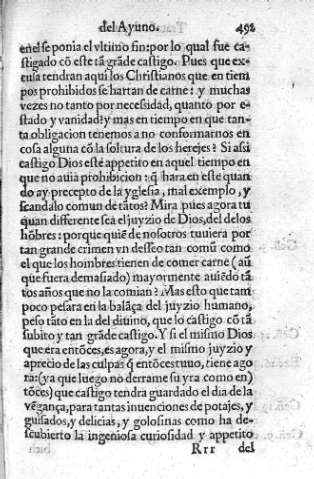 del Ayuno. 492
enel se ponia el vltimo fin: por lo qual fue ca-
stigado cõ este tã grãde castigo. Pues que ex-
cusa tendran aqui los Christianos que en tiem
pos prohibidos se hartan de carne: y muchas
vezes no tanto por necessidad, quanto por e-
stado y vanidad? y mas en tiempo en que tan-
ta obligacion tenemos a no conformarnos en
cosa alguna cõ la soltura de los herejes? Si assi
castigo Dios esté appetito en aquel tiempo en
que no auia prohibicion: q̃ hara en este quan
do ay precepto de la yglesia, mal exemplo, y
scandalo comun de tãtos? Mira pues agora tu
quan differente sea el juyzio de Dios, del delos
hõbres: porque quiẽ de nosotros tuuiera por
tan grande crimen vn desseo tan comũ como
el que los hombres tienen de comer carne (aũ
que fuera demasiado) mayormente auiẽdo tã
tos años que no la comian? Mas esto que tam
poco pesara en la balãça del juyzio humano,
peso tãto en la del diuino, que lo castigo cõ tã
subito y tan grãde castigo. Y si el mismo Dios
que era entõces, es agora, y el mismo juyzio y
aprecio de las culpas q̃ entõces tuuo, tiene ago
ra: (ya que luego no derrame su yra como en)
tõces) que castigo tendra guardado el dia de la
vẽgança, para tantas inuenciones de potajes, y
guisados, y delicias, y golosinas como ha de-
scubierto la ingeniosa curiosidad y appetito
Rrr del